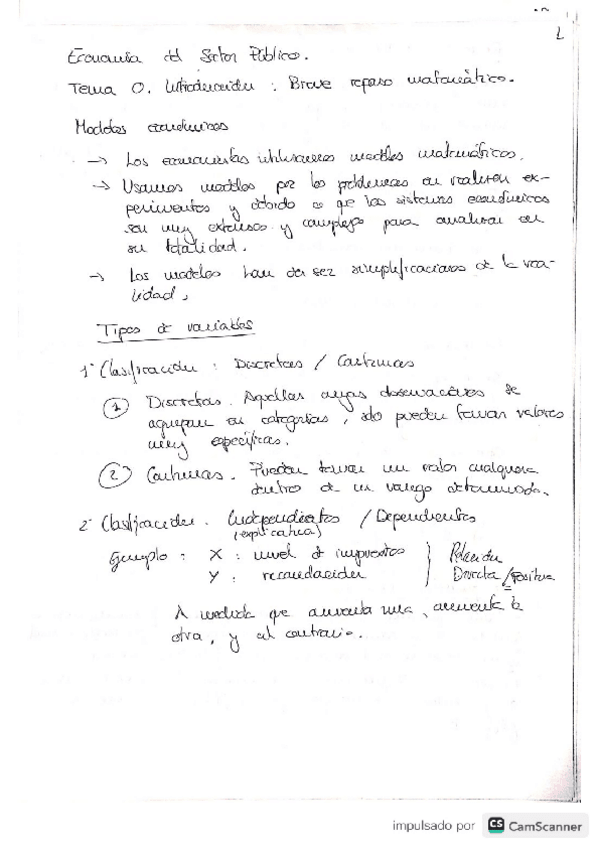 1
Economía del Sector Público.
Tema 0. Introducción : Breve repaso matemático.
Modelos económicos
→ Los economistas utilizamos modelos matemáticos.
→ Usamos modelos por los problemas en realizar ex-
perimentos y debido a que los sistemas económicos
son muy extensos y complejos para analizar en
su totalidad.
→ Los modelos han de ser simplificaciones de la rea-
lidad.
Tipos de variables
1ª Clasificación : Discretas / Continuas
① Discretas. Aquellas cuyas observaciones se
agrupan en categorías, solo pueden tomar valores
muy específicos.
② Continuas. Pueden tomar un valor cualquiera
dentro de un rango determinado.
2ª Clasificación. Independientes / Dependientes
(explicativa)
Ejemplo : X : nivel de impuestos } Relación
Y : recaudación } Directa / Positiva
A medida que aumenta una, aumenta la
otra, y al contrario.
impulsado por CS CamScanner